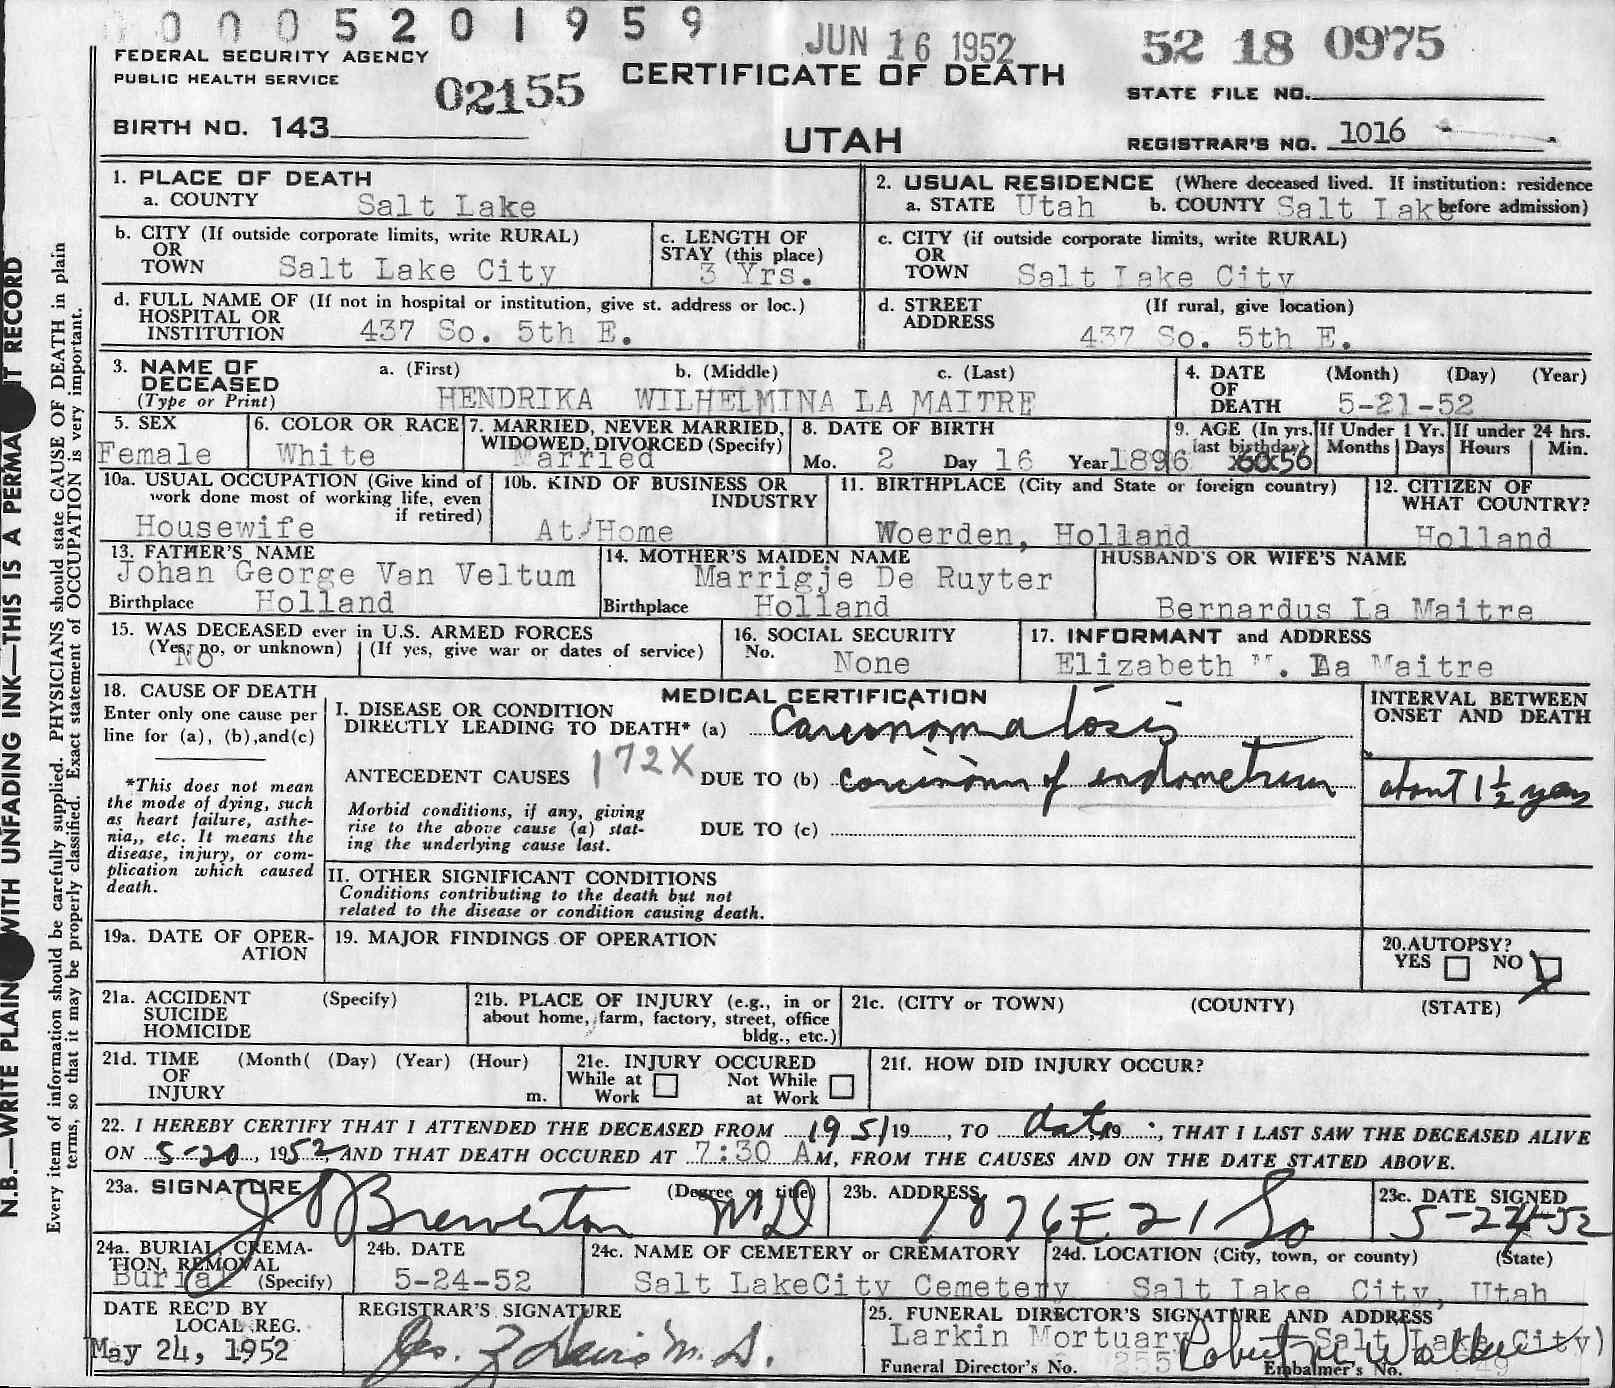 0005201959
JUN 16 1952
52 18 0975
FEDERAL SECURITY AGENCY
PUBLIC HEALTH SERVICE
02155
CERTIFICATE OF DEATH
STATE FILE NO.
BIRTH NO. 143
UTAH
REGISTRAR'S NO. 1016
1. PLACE OF DEATH
a. COUNTY Salt Lake
2. USUAL RESIDENCE (Where deceased lived. If institution: residence before admission)
a. STATE Utah b. COUNTY Salt Lake
b. CITY (If outside corporate limits, write RURAL)
OR
TOWN Salt Lake City
c. LENGTH OF
STAY (this place)
3 Yrs.
c. CITY (if outside corporate limits, write RURAL)
OR
TOWN Salt Lake City
d. FULL NAME OF (If not in hospital or institution, give st. address or loc.)
HOSPITAL OR
INSTITUTION 437 So. 5th E.
d. STREET (If rural, give location)
ADDRESS 437 So. 5th E.
3. NAME OF a. (First) b. (Middle) c. (Last)
DECEASED
(Type or Print) HENDRIKA WILHELMINA LA MAITRE
4. DATE (Month) (Day) (Year)
OF
DEATH 5-21-52
5. SEX
Female
6. COLOR OR RACE
White
7. MARRIED, NEVER MARRIED,
WIDOWED, DIVORCED (Specify)
Married
8. DATE OF BIRTH
Mo. 2 Day 16 Year 1896
9. AGE (In yrs. last birthday) 56
If Under 1 Yr. Months Days
If under 24 hrs. Hours Min.
10a. USUAL OCCUPATION (Give kind of
work done most of working life, even
if retired)
Housewife
10b. KIND OF BUSINESS OR
INDUSTRY
At Home
11. BIRTHPLACE (City and State or foreign country)
Woerden, Holland
12. CITIZEN OF
WHAT COUNTRY?
Holland
13. FATHER'S NAME
Johan George Van Veltum
Birthplace Holland
14. MOTHER'S MAIDEN NAME
Marrigje De Ruyter
Birthplace Holland
HUSBAND'S OR WIFE'S NAME
Bernardus La Maitre
15. WAS DECEASED ever in U.S. ARMED FORCES
(Yes, no, or unknown) (If yes, give war or dates of service)
No
16. SOCIAL SECURITY
No. None
17. INFORMANT and ADDRESS
Elizabeth M. La Maitre
18. CAUSE OF DEATH
Enter only one cause per
line for (a), (b), and (c)
*This does not mean
the mode of dying, such
as heart failure, asthe-
nia,, etc. It means the
disease, injury, or com-
plication which caused
death.
MEDICAL CERTIFICATION
I. DISEASE OR CONDITION
DIRECTLY LEADING TO DEATH* (a) Carcinomatosis
ANTECEDENT CAUSES 172X DUE TO (b) carcinoma of endometrium
Morbid conditions, if any, giving
rise to the above cause (a) stat-
ing the underlying cause last.
DUE TO (c)
INTERVAL BETWEEN
ONSET AND DEATH
about 1 1/2 years
II. OTHER SIGNIFICANT CONDITIONS
Conditions contributing to the death but not
related to the disease or condition causing death.
19a. DATE OF OPER-
ATION
19. MAJOR FINDINGS OF OPERATION
20. AUTOPSY?
YES NO X
21a. ACCIDENT (Specify)
SUICIDE
HOMICIDE
21b. PLACE OF INJURY (e.g., in or
about home, farm, factory, street, office
bldg., etc.)
21c. (CITY or TOWN) (COUNTY) (STATE)
21d. TIME (Month( (Day) (Year) (Hour)
OF
INJURY m.
21e. INJURY OCCURED
While at Work Not While at Work
21f. HOW DID INJURY OCCUR?
22. I HEREBY CERTIFY THAT I ATTENDED THE DECEASED FROM 1951 19...., TO date, 19...., THAT I LAST SAW THE DECEASED ALIVE
ON 5-20, 1952 AND THAT DEATH OCCURED AT 7:30 AM, FROM THE CAUSES AND ON THE DATE STATED ABOVE.
23a. SIGNATURE (Degree or title)
Brewerton MD
23b. ADDRESS
1876 E 21 So
23c. DATE SIGNED
5-24-52
24a. BURIAL, CREMA-
TION, REMOVAL
(Specify)
Burial
24b. DATE
5-24-52
24c. NAME OF CEMETERY or CREMATORY
Salt LakeCity Cemetery
24d. LOCATION (City, town, or county) (State)
Salt Lake City, Utah
DATE REC'D BY
LOCAL REG.
May 24, 1952
REGISTRAR'S SIGNATURE
Davis M.D.
25. FUNERAL DIRECTOR'S SIGNATURE AND ADDRESS
Larkin Mortuary Salt Lake City)
Funeral Director's No. Embalmer's No.
N.B.—WRITE PLAIN WITH UNFADING INK—THIS IS A PERMA T RECORD
Every item of information should be carefully supplied. PHYSICIANS should state CAUSE OF DEATH in plain
terms, so that it may be properly classified. Exact statement of OCCUPATION is very important.